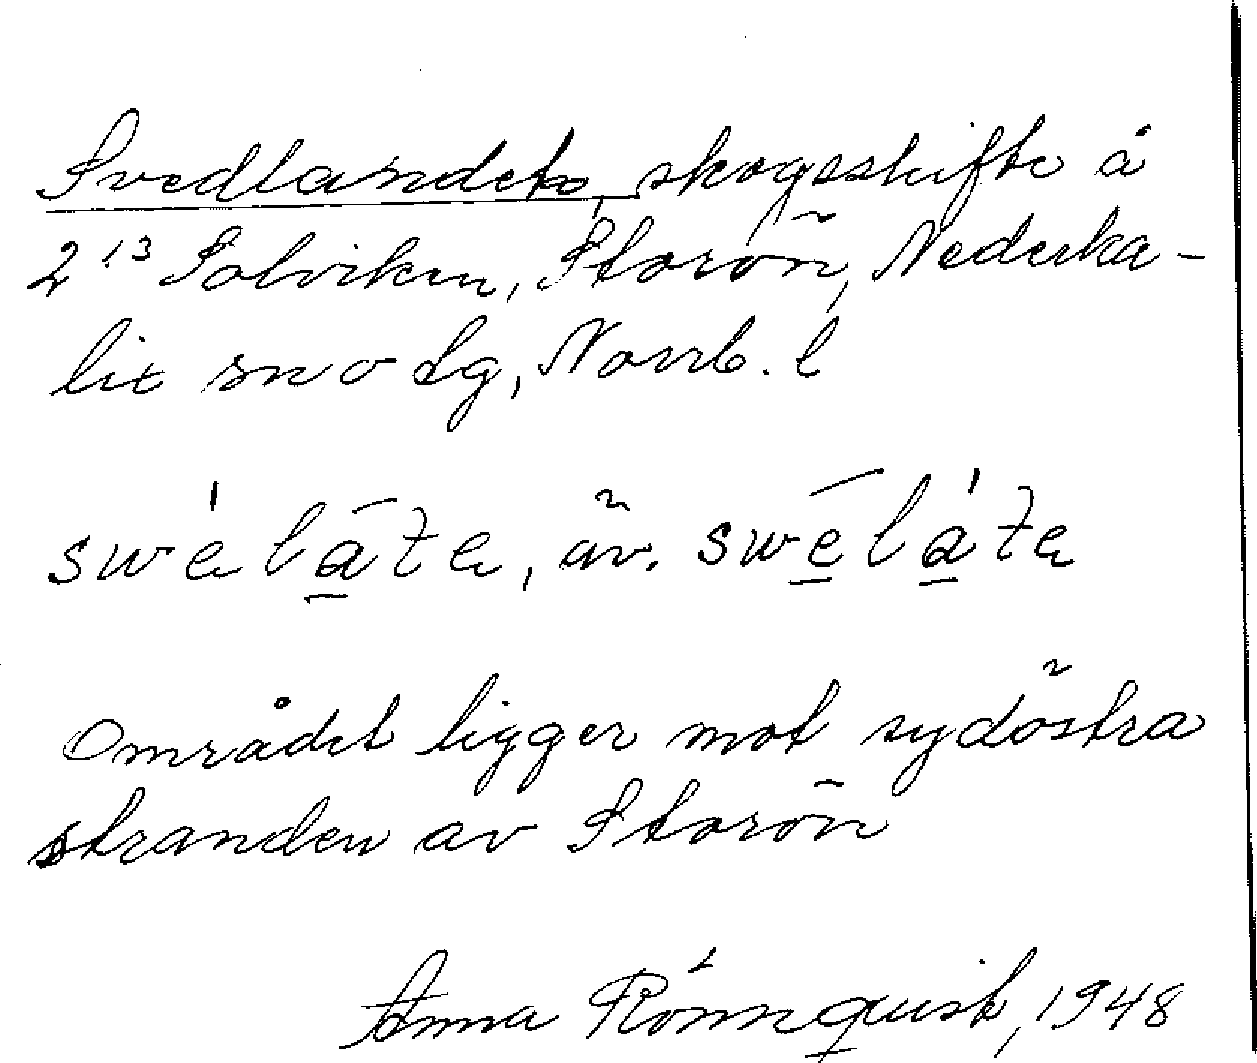 Svedlandet, skogsskifte å
2¹³ Solviken, Storön, Nederka-
lix sn o lg, Norrb. l
swélāta, äv. swēláta
Området ligger mot sydöstra
stranden av Storön
Anna Rönnquist, 1948